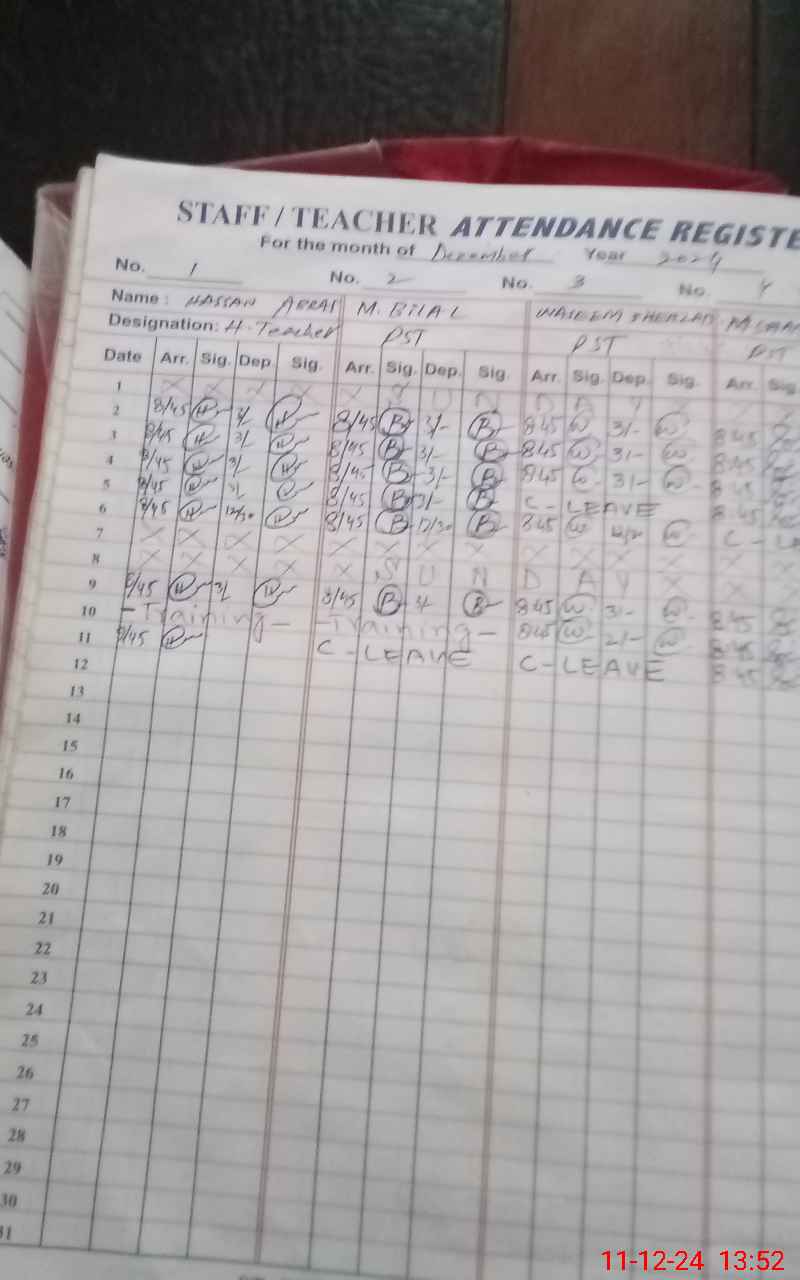 STAFF / TEACHER ATTENDANCE REGISTE
For the month of December Year 2024
No. 1 No. 2 No. 3 No. 4
Name : HASSAN M. BILAL WASEEM
Designation: H. Teacher PST PST PST
Date Arr. Sig. Dep. Sig. Arr. Sig. Dep. Sig. Arr. Sig. Dep. Sig. Arr. Sig
1 X X X X X S U N D A Y X X
2 8/45 H 3/ H 8/45 B 3/- B 8 45 W 3/- W 8 45
3 8/45 H 3/ H 8/45 B 3/- B 8 45 W 3/- W 8 45
4 8/45 H 3/ H 8/45 B 3/- B 8 45 W 3/- W 8 45
5 8/45 H 3/ H 8/45 B 3/- B C - LEAVE 8 45
6 8/45 H 12/30 H 8/45 B 12/30 B 8 45 W W C - LE
7 X X X X X X X X X X X X X
8 X X X X X S U N D A Y X X
9 8/45 H 3/ H 8/45 B 3/- B 8 45 W 3/- W 8 45
10 - Training - - Training - 8 45 W 2/- W 8 45
11 8/45 H C - LEAVE C - LEAVE 8 45
12
13
14
15
16
17
18
19
20
21
22
23
24
25
26
27
28
29
30
31
11-12-24 13:52